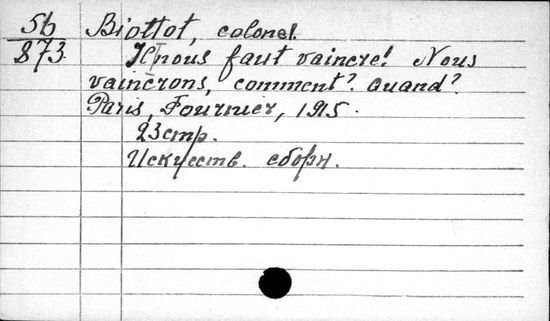 56 Biottot, colonel.
873. Il nous faut vaincre! Nous
vaincrons, comment? quand?
Paris, Fournier, 1915.
23 стр.
Искусств. сборн.